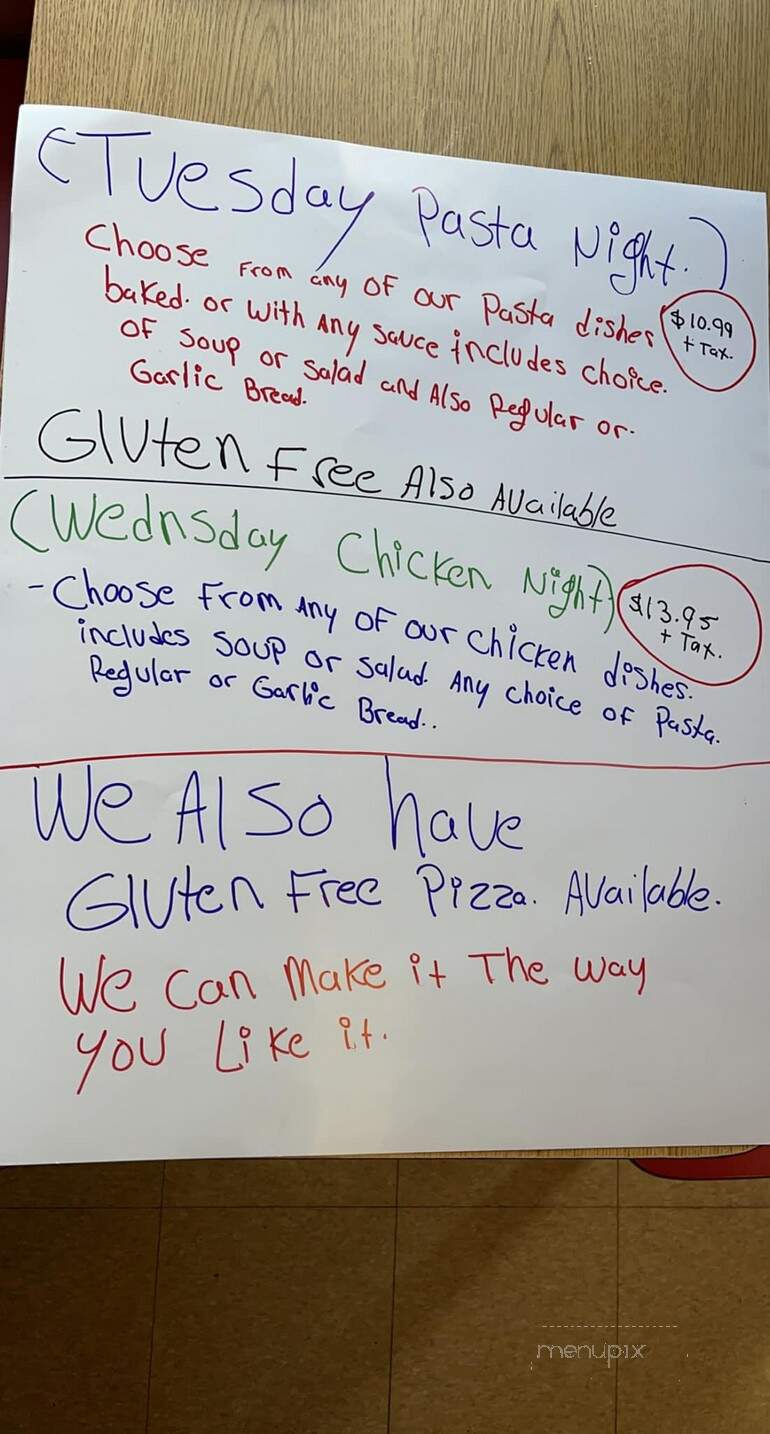 (Tuesday Pasta Night.)
Choose From any OF our Pasta dishes
baked. or with Any Sauce includes choice.
OF Soup or Salad and Also Regular or.
Garlic Bread.
$10.99
+ Tax.
Gluten Free Also Available
(Wednsday Chicken Night)
- Choose From Any OF our chicken dishes.
includes Soup or Salad. Any choice OF Pasta.
Regular or Garlic Bread..
$13.95
+ Tax.
We Also have
Gluten Free Pizza. Available.
We can Make it The way
you Like it.
menupix